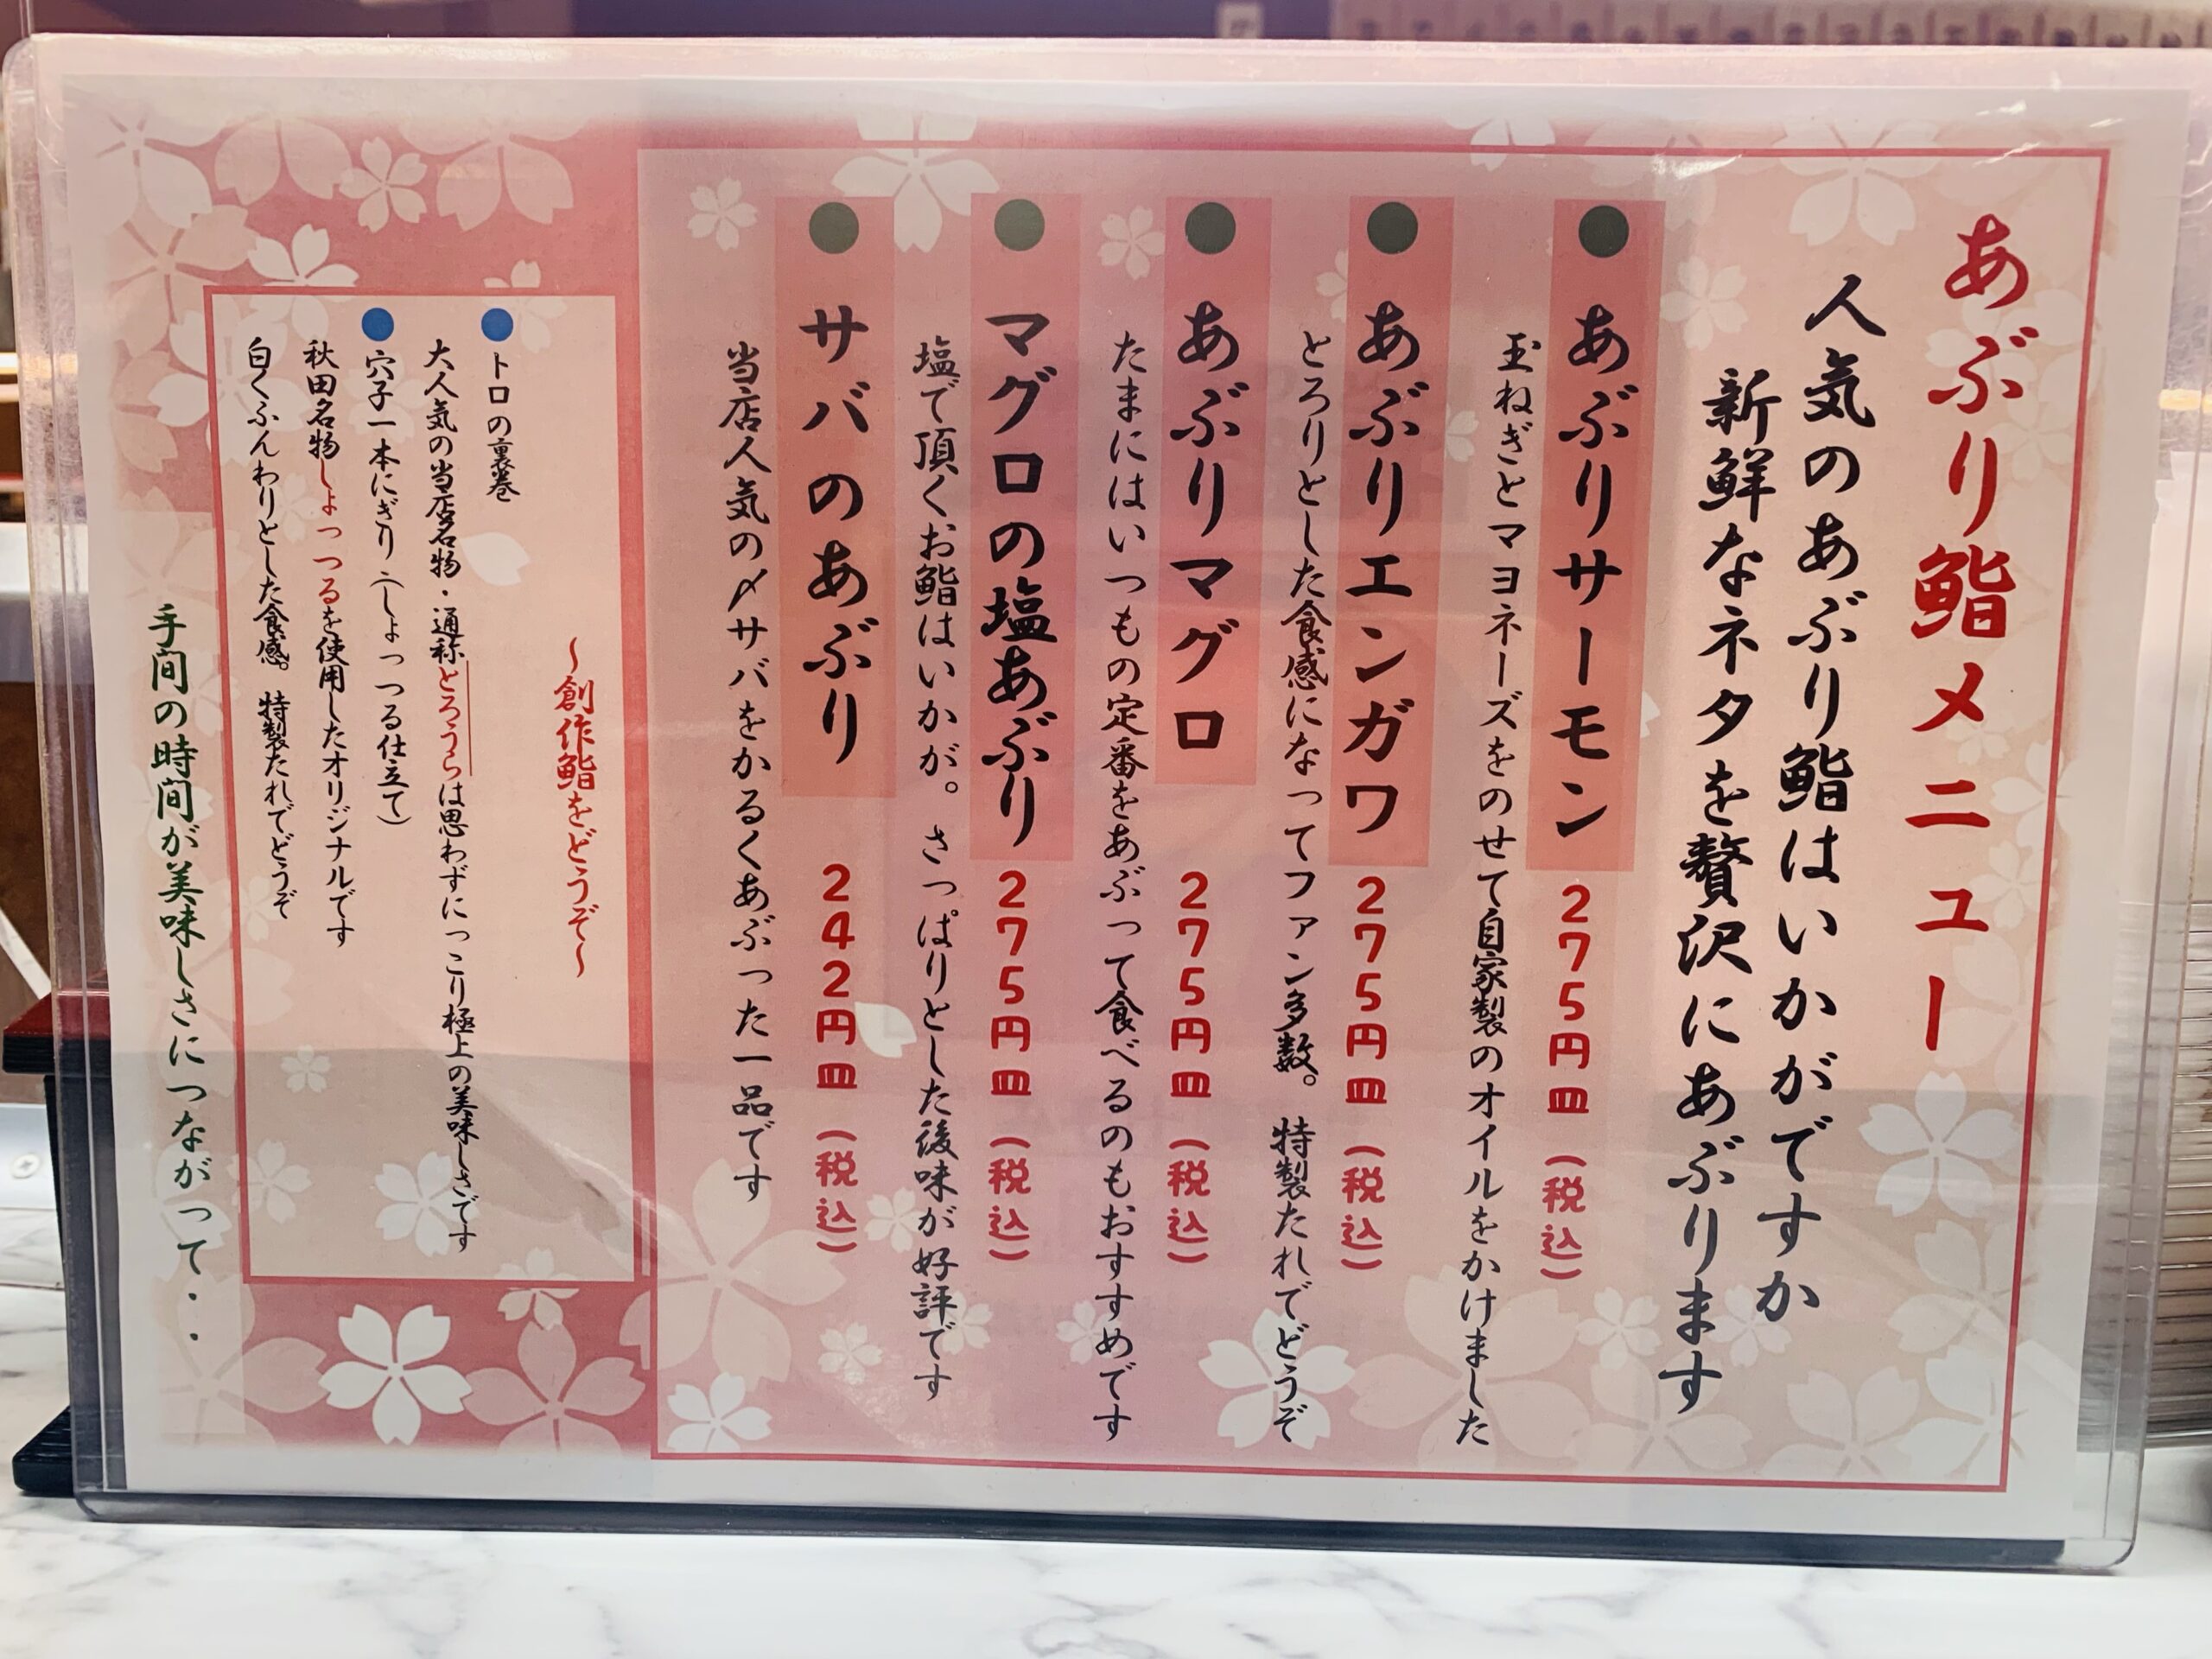 あぶり鮨メニュー
人気のあぶり鮨はいかがですか
新鮮なネタを贅沢にあぶります
あぶりサーモン 275円皿（税込）
玉ねぎとマヨネーズをのせて自家製のオイルをかけました
あぶりエンガワ 275円皿（税込）
とろりとした食感になってファン多数。特製たれでどうぞ
あぶりマグロ 275円皿（税込）
たまにはいつもの定番をあぶって食べるのもおすすめです
マグロの塩あぶり 275円皿（税込）
塩で頂くお鮨はいかが。さっぱりとした後味が好評です
サバのあぶり 242円皿（税込）
当店人気の〆サバをかるくあぶった一品です
～創作鮨をどうぞ～
トロの裏巻
大人気の当店名物・通称とろうらは思わずにっこり極上の美味しさです
穴子一本にぎり（しょっつる仕立て）
秋田名物しょっつるを使用したオリジナルです
白くふんわりとした食感。特製たれでどうぞ
手間の時間が美味しさにつながって・・・